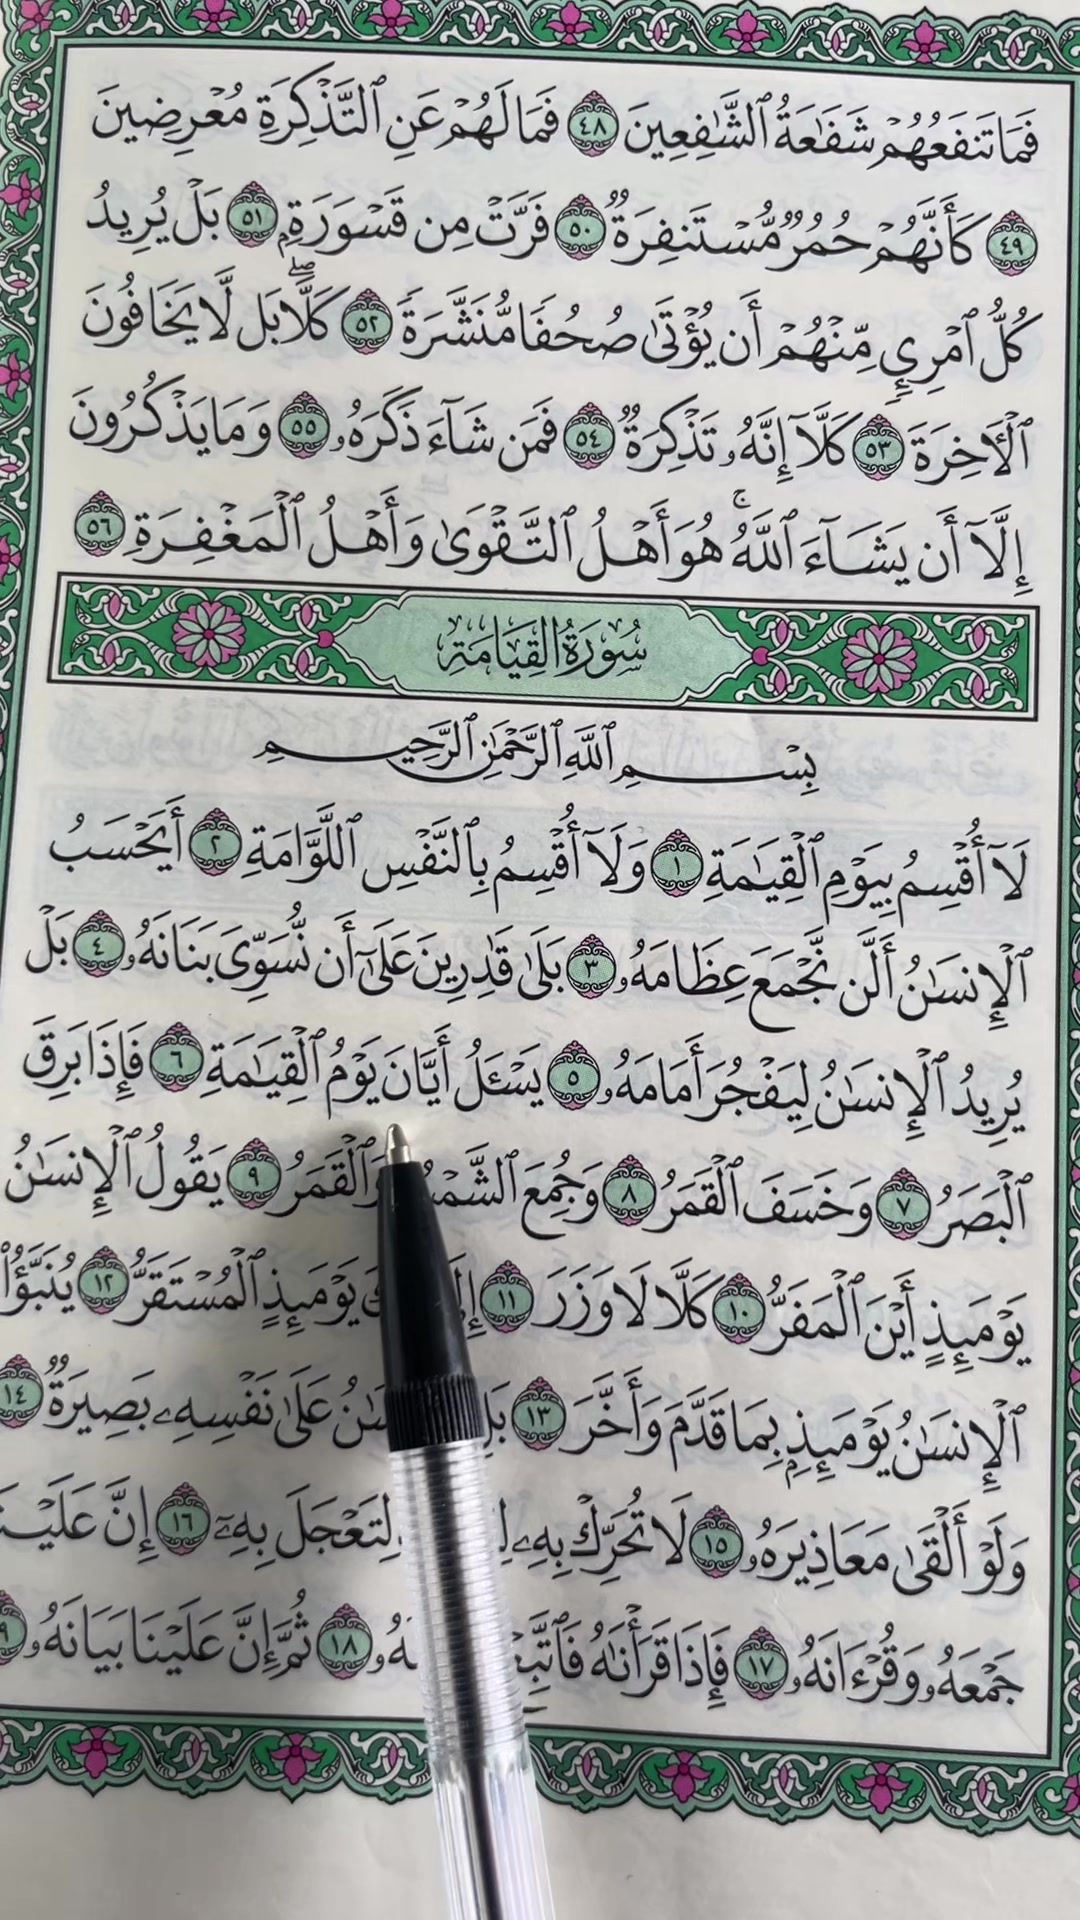 فَمَا تَنفَعُهُمْ شَفَٰعَةُ ٱلشَّٰفِعِينَ ٤٨ فَمَا لَهُمْ عَنِ ٱلتَّذْكِرَةِ مُعْرِضِينَ
٤٩ كَأَنَّهُمْ حُمُرٌ مُّسْتَنفِرَةٌ ٥٠ فَرَّتْ مِن قَسْوَرَةٍۭ ٥١ بَلْ يُرِيدُ
كُلُّ ٱمْرِئٍ مِّنْهُمْ أَن يُؤْتَىٰ صُحُفًا مُّنَشَّرَةً ٥٢ كَلَّاۖ بَل لَّا يَخَافُونَ
ٱلْءَاخِرَةَ ٥٣ كَلَّآ إِنَّهُۥ تَذْكِرَةٌ ٥٤ فَمَن شَآءَ ذَكَرَهُۥ ٥٥ وَمَا يَذْكُرُونَ
إِلَّآ أَن يَشَآءَ ٱللَّهُۚ هُوَ أَهْلُ ٱلتَّقْوَىٰ وَأَهْلُ ٱلْمَغْفِرَةِ ٥٦
سُورَةُ القِيَامَةِ
بِسْمِ ٱللَّهِ ٱلرَّحْمَٰنِ ٱلرَّحِيمِ
لَآ أُقْسِمُ بِيَوْمِ ٱلْقِيَٰمَةِ ١ وَلَآ أُقْسِمُ بِٱلنَّفْسِ ٱللَّوَّامَةِ ٢ أَيَحْسَبُ
ٱلْإِنسَٰنُ أَلَّن نَّجْمَعَ عِظَامَهُۥ ٣ بَلَىٰ قَٰدِرِينَ عَلَىٰٓ أَن نُّسَوِّىَ بَنَانَهُۥ ٤ بَلْ
يُرِيدُ ٱلْإِنسَٰنُ لِيَفْجُرَ أَمَامَهُۥ ٥ يَسْـَٔلُ أَيَّانَ يَوْمُ ٱلْقِيَٰمَةِ ٦ فَإِذَا بَرِقَ
ٱلْبَصَرُ ٧ وَخَسَفَ ٱلْقَمَرُ ٨ وَجُمِعَ ٱلشَّمْسُ وَٱلْقَمَرُ ٩ يَقُولُ ٱلْإِنسَٰنُ
يَوْمَئِذٍ أَيْنَ ٱلْمَفَرُّ ١٠ كَلَّا لَا وَزَرَ ١١ يَوْمَئِذٍ ٱلْمُسْتَقَرُّ ١٢ يُنَبَّؤُا۟
ٱلْإِنسَٰنُ يَوْمَئِذٍۭ بِمَا قَدَّمَ وَأَخَّرَ ١٣ عَلَىٰ نَفْسِهِۦ بَصِيرَةٌ ١٤
وَلَوْ أَلْقَىٰ مَعَاذِيرَهُۥ ١٥ لَا تُحَرِّكْ بِهِۦ لِتَعْجَلَ بِهِۦٓ ١٦ إِنَّ عَلَيْنَا
جَمْعَهُۥ وَقُرْءَانَهُۥ ١٧ فَإِذَا قَرَأْنَٰهُ فَٱتَّبِعْ ١٨ ثُمَّ إِنَّ عَلَيْنَا بَيَانَهُۥ